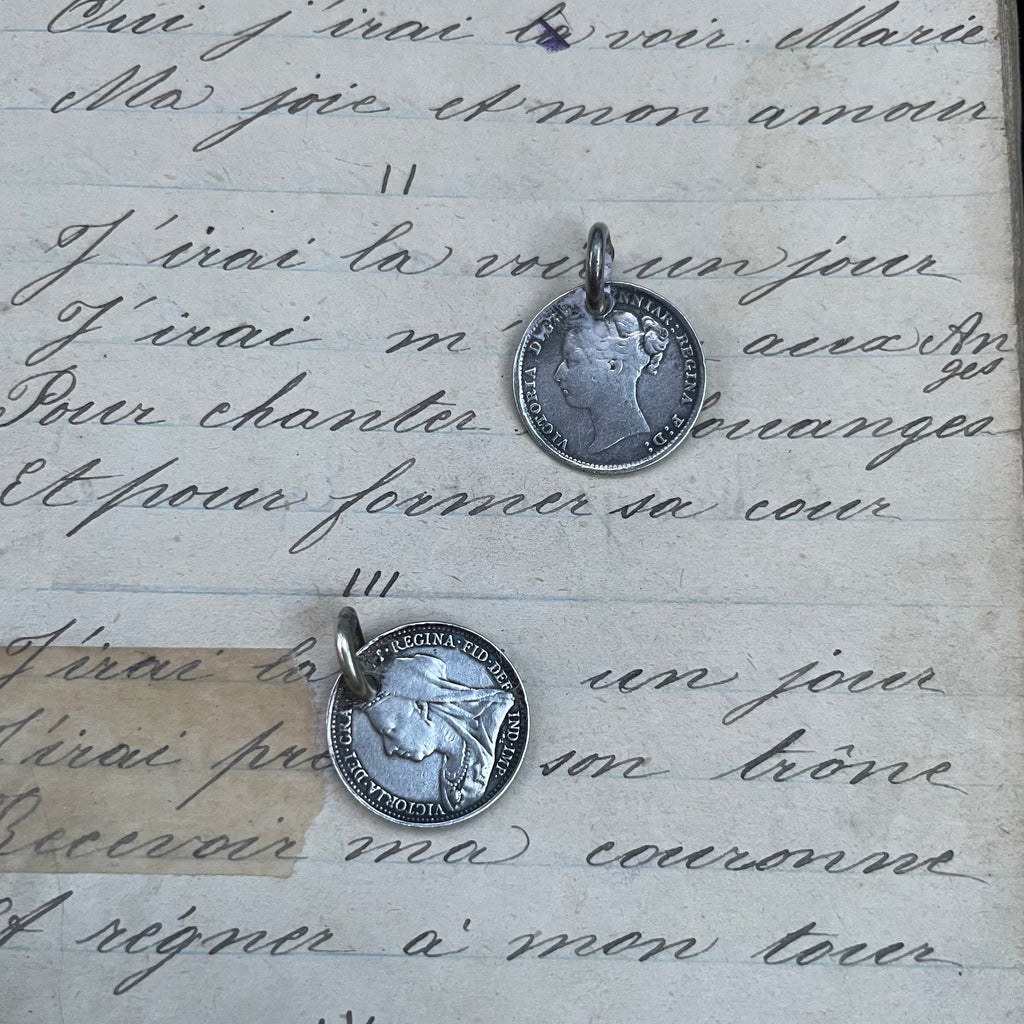 Oui j'irai la voir Marie
Ma joie et mon amour
II
J'irai la voir un jour
J'irai m' aux Anges
Pour chanter louanges
Et pour former sa cour
III
J'irai la un jour
J'irai son trône
Recevoir ma couronne
Et régner à mon tour
VICTORIA D: BRITANNIAR: REGINA F:D:
VICTORIA·DEI·GRA· REGINA·FID·DEF· IND·IMP·